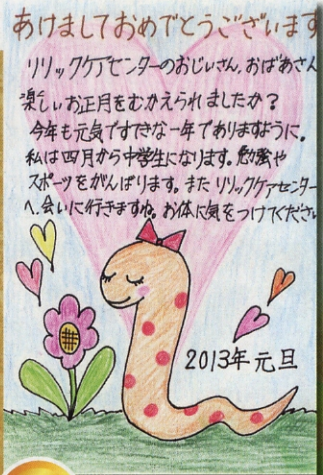 あけましておめでとうございます
リリックケアセンターのおじいさん、おばあさん
楽しいお正月をむかえられましたか？
今年も元気ですてきな一年でありますように。
私は四月から中学生になります。勉強や
スポーツをがんばります。また リリックケアセンター
へ、会いに行きますね。お体に気をつけてください
2013年 元旦